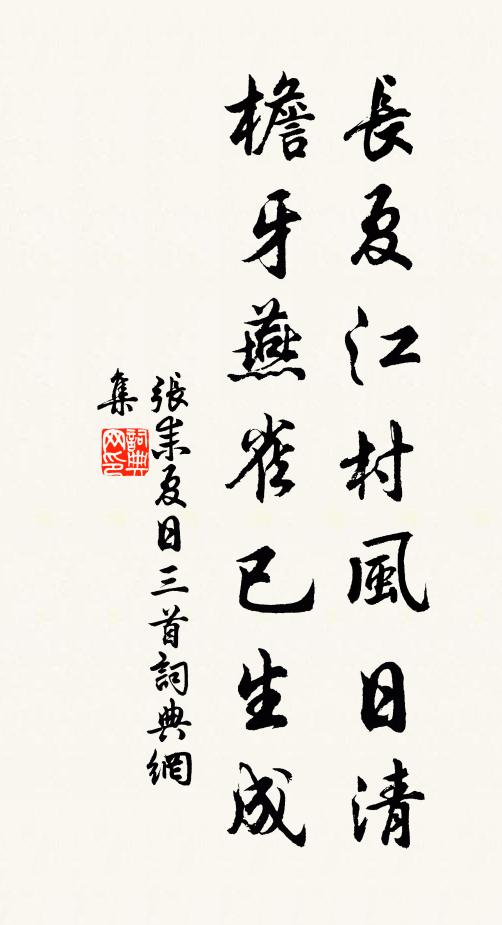 長夏江村風日清
檐牙燕雀已生成
張耒夏日三首詞典網
集
詞典网印